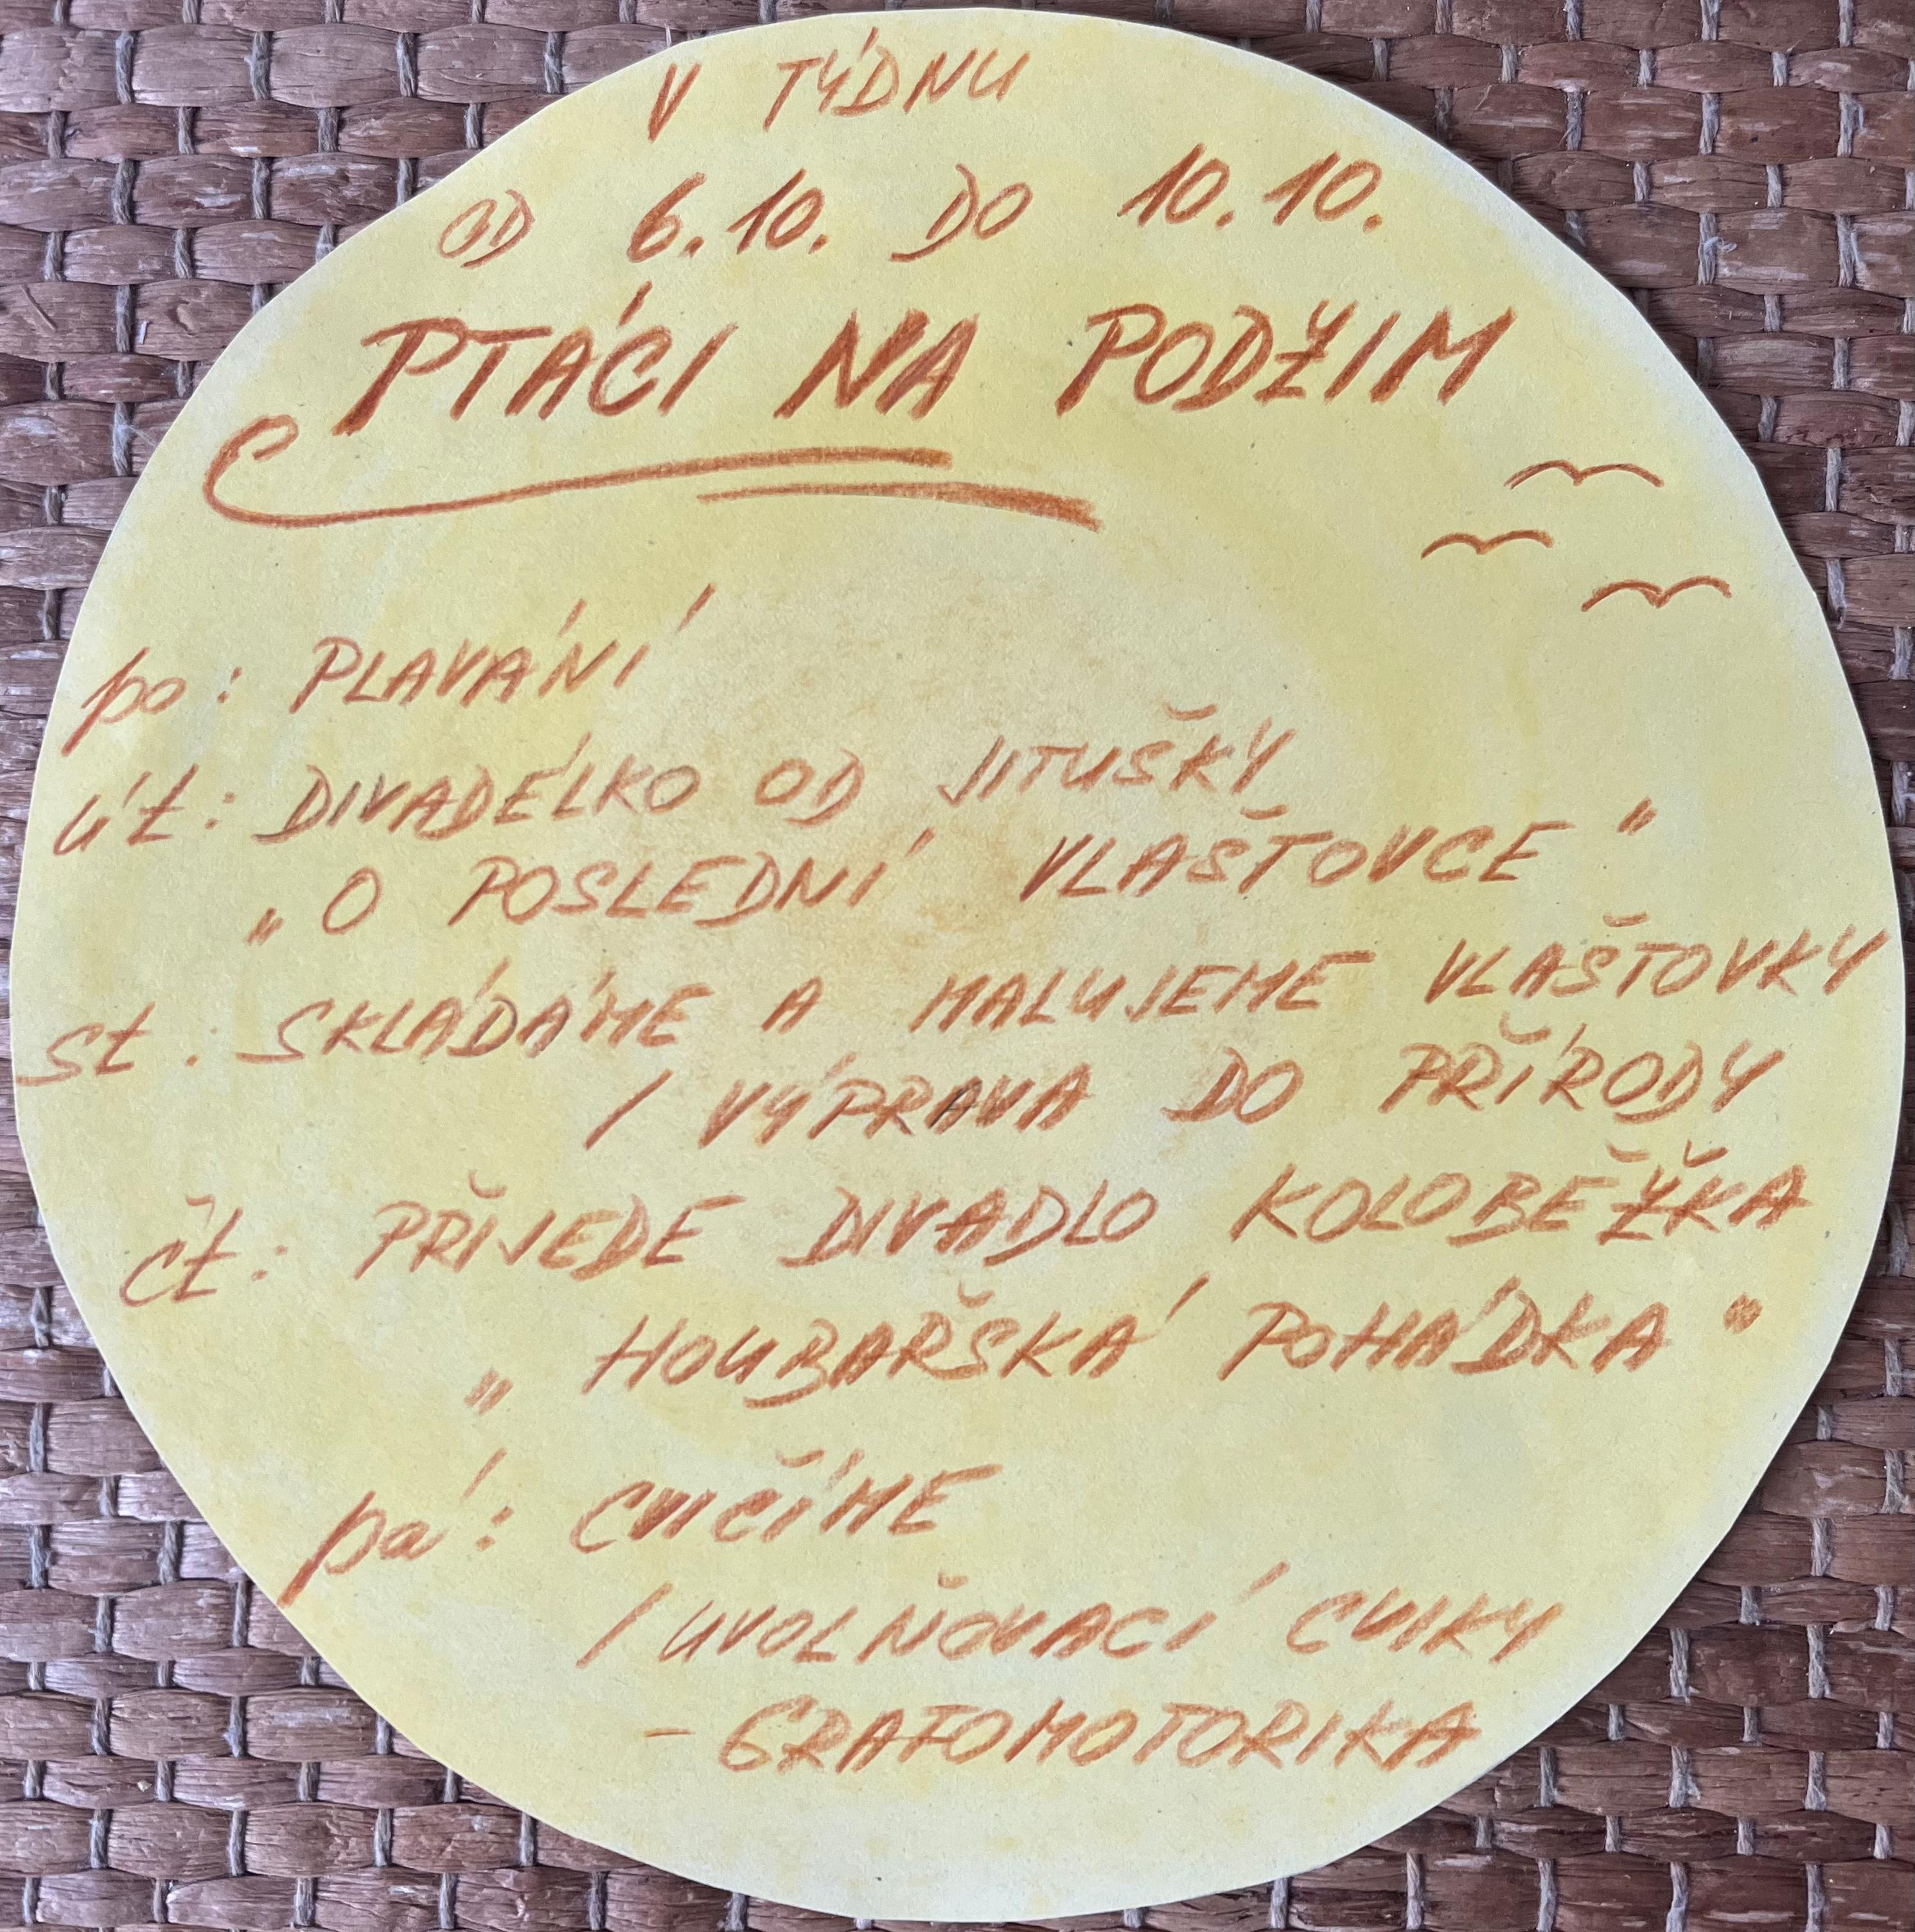 V TÝDNU
OD 6.10. DO 10.10.
PTÁCI NA PODZIM
po: PLAVÁNÍ
út: DIVADÉLKO OD JITUŠKY
„O POSLEDNÍ VLAŠTOVCE"
st. SKLÁDÁME A MALUJEME VLAŠTOVKY
/ VÝPRAVA DO PŘÍRODY
čt: PŘIJEDE DIVADLO KOLOBĚŽKA
„HOUBAŘSKÁ POHÁDKA"
pá: CVIČÍME
/ UVOLŇOVACÍ CVIKY
- GRAFOMOTORIKA